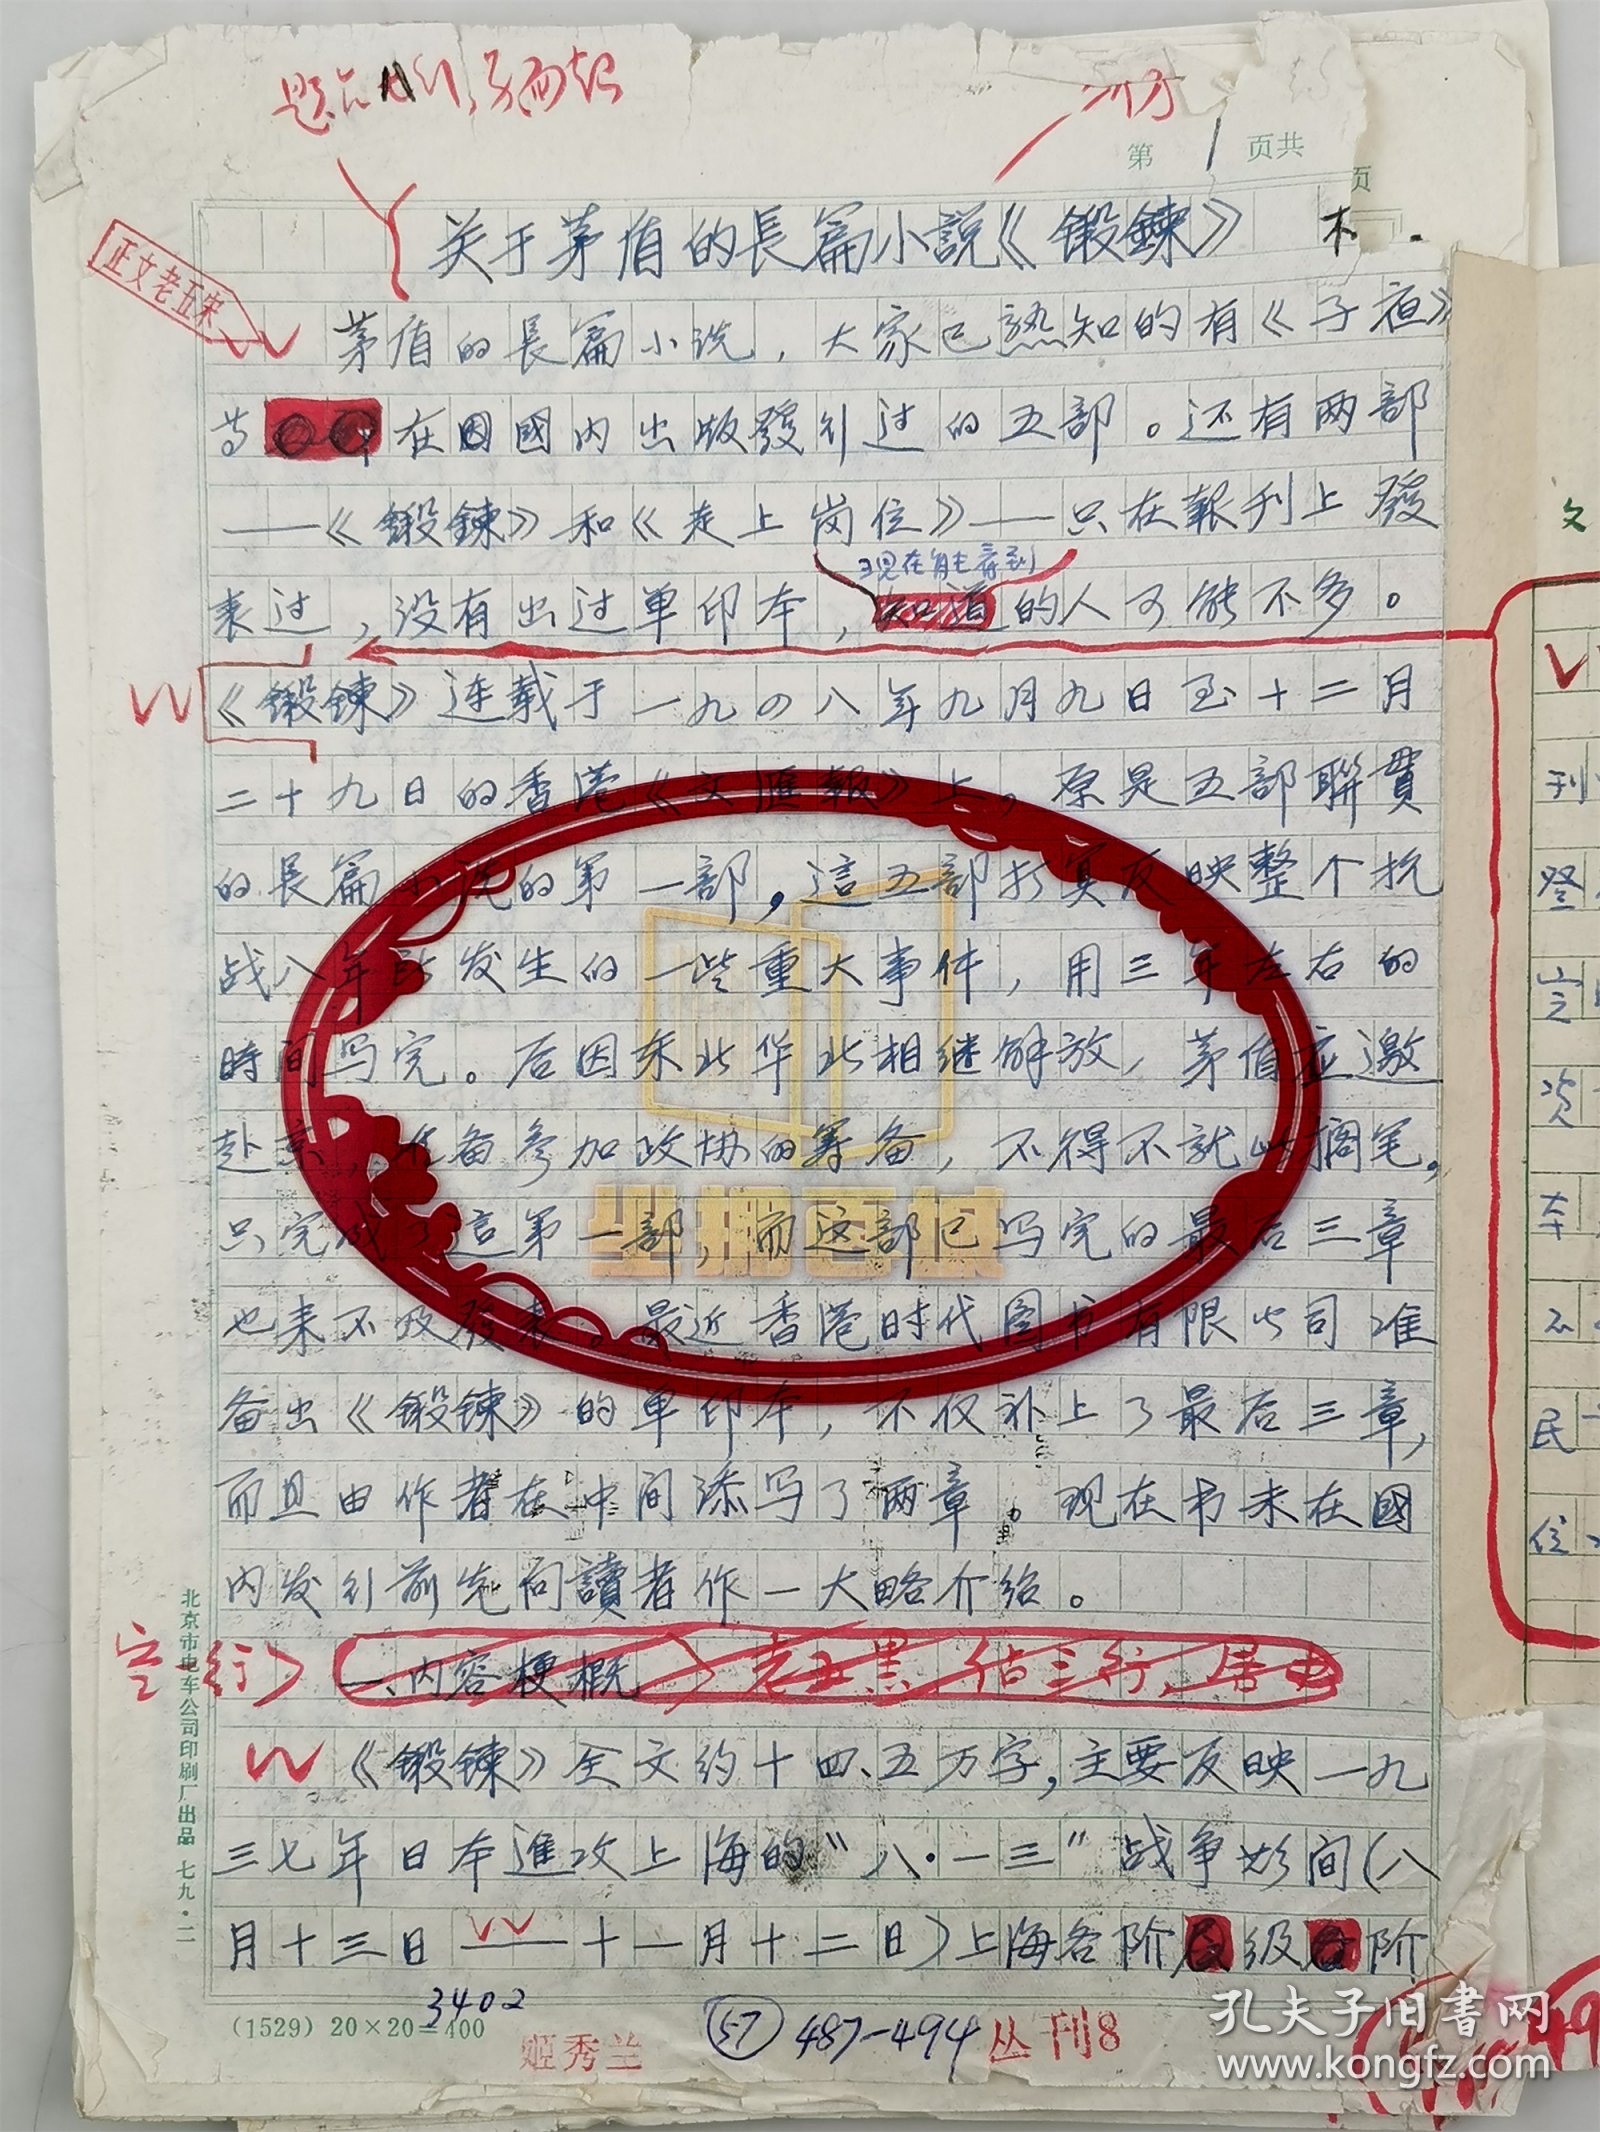 第 1 页共
页
关于茅盾的長篇小説《鍛鍊》
正文老五宋
茅盾的長篇小说，大家已熟知的有《子夜》
等在國内出版發行过的五部。还有两部
——《鍛鍊》和《走上岗位》——只在報刊上發
现在能看到
表过，没有出过单印本，知道的人可能不多。
《鍛鍊》连载于一九四八年九月九日至十二月
二十九日的香港《文匯報》上，原是五部聯貫
的長篇小说的第一部，這五部打算反映整个抗
战八年所发生的一些重大事件，用三年左右的
時间写完。后因东北华北相继解放，茅盾应邀
赴京，准备参加政协的筹备，不得不就此搁笔，
只完成了這第一部，而这部已写完的最后三章
也来不及發表。最近香港时代图书有限公司准
备出《鍛鍊》的单印本，不仅补上了最后三章，
而且由作者在中间添写了两章。现在书未在國
内发行前先向讀者作一大略介绍。
空一行 一、内容梗概 老五黑 佔三行，居中
《鍛鍊》全文约十四、五万字，主要反映一九
三七年日本進攻上海的“八·一三”战争期间（八
月十三日——十一月十二日）上海各阶级阶
北京市电车公司印刷厂出品 七九·二
(1529) 20×20=400
3402
姬秀兰
57 487-494 丛刊8
文
刊
登
资
本
民
信
孔夫子旧书网
www.kongfz.com